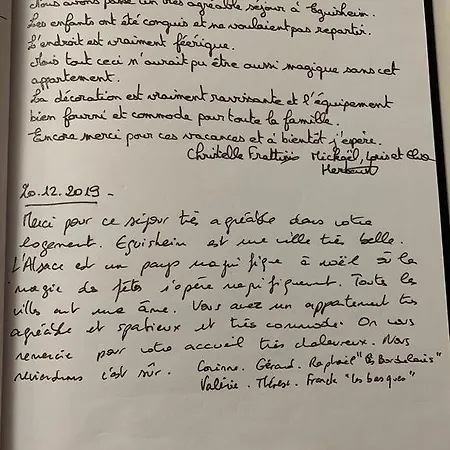 Nous avons passé un très agréable séjour à Eguisheim.
Les enfants ont été conquis et ne voulaient pas repartir.
L'endroit est vraiment féérique.
Mais tout ceci n'aurait pu être aussi magique sans cet
appartement.
La décoration est vraiment ravissante et l'équipement
bien fourni et commode pour toute la famille.
Encore merci pour ces vacances et à bientôt j'espère.
Christelle Mickaël, Loris et
20.12.2019 -
Merci pour ce séjour très agréable dans votre
logement. Eguisheim est une ville très belle.
L'Alsace est un pays magnifique à noël où la
magie des fêtes s'opère magnifiquement. Toute les
villes ont une âme. Vous avez un appartement très
agréable et spatieux et très commode. On vous
remercie pour votre accueil très chaleureux. Nous
reviendrons c'est sûr. Corinne. Gérard. Raphaël "les Bordelais"
Valérie. Thérèse. Franck "les basques"